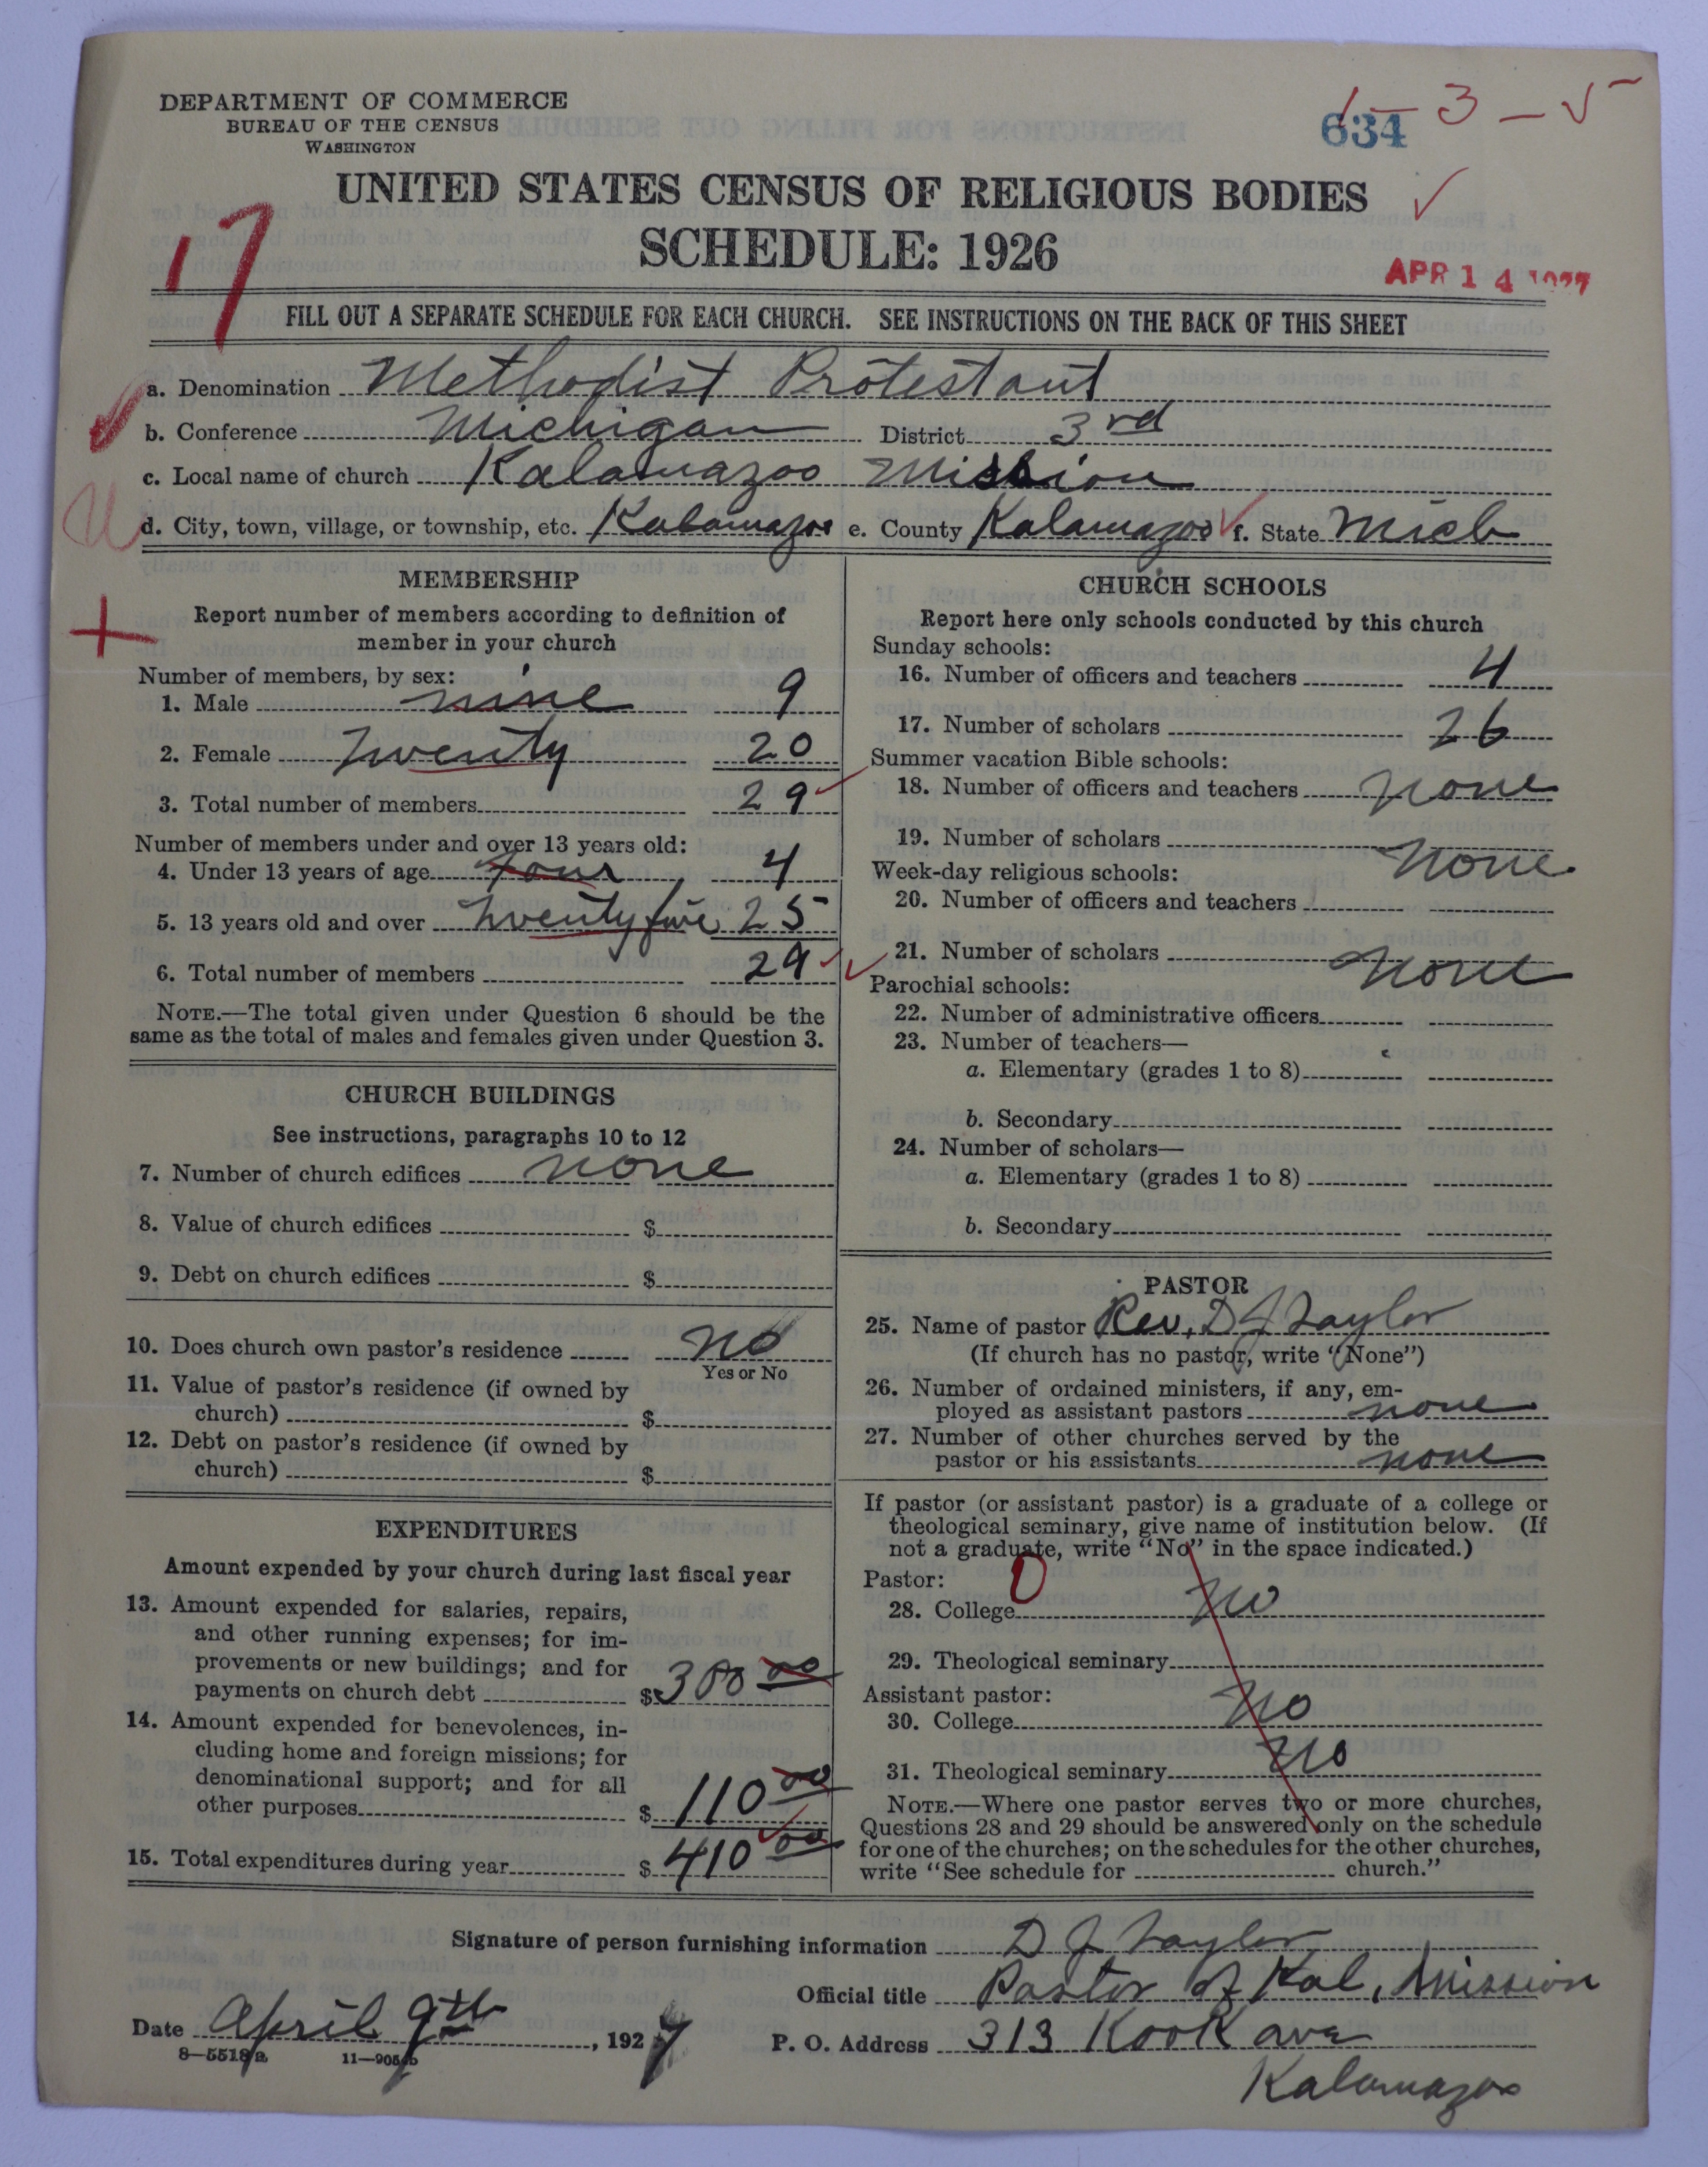 DEPARTMENT OF COMMERCE
BUREAU OF THE CENSUS
WASHINGTON
634
1 – 3 – 5
UNITED STATES CENSUS OF RELIGIOUS BODIES
SCHEDULE: 1926
17
APR 14 1927
FILL OUT A SEPARATE SCHEDULE FOR EACH CHURCH. SEE INSTRUCTIONS ON THE BACK OF THIS SHEET
a. Denomination Methodist Protestant
b. Conference Michigan District 3rd
c. Local name of church Kalamazoo Mission
d. City, town, village, or township, etc. Kalamazoo e. County Kalamazoo f. State Mich
MEMBERSHIP
Report number of members according to definition of
member in your church
Number of members, by sex:
1. Male nine 9
2. Female Twenty 20
3. Total number of members 29
Number of members under and over 13 years old:
4. Under 13 years of age four 4
5. 13 years old and over Twenty five 25
6. Total number of members 29
NOTE.—The total given under Question 6 should be the
same as the total of males and females given under Question 3.
CHURCH BUILDINGS
See instructions, paragraphs 10 to 12
7. Number of church edifices none
8. Value of church edifices $
9. Debt on church edifices $
10. Does church own pastor's residence No
Yes or No
11. Value of pastor's residence (if owned by
church) $
12. Debt on pastor's residence (if owned by
church) $
EXPENDITURES
Amount expended by your church during last fiscal year
13. Amount expended for salaries, repairs,
and other running expenses; for im-
provements or new buildings; and for
payments on church debt $ 300 00
14. Amount expended for benevolences, in-
cluding home and foreign missions; for
denominational support; and for all
other purposes $ 110 00
15. Total expenditures during year $ 410 00
CHURCH SCHOOLS
Report here only schools conducted by this church
Sunday schools:
16. Number of officers and teachers 4
17. Number of scholars 26
Summer vacation Bible schools:
18. Number of officers and teachers none
19. Number of scholars none
Week-day religious schools:
20. Number of officers and teachers
21. Number of scholars none
Parochial schools:
22. Number of administrative officers
23. Number of teachers—
a. Elementary (grades 1 to 8)
b. Secondary
24. Number of scholars—
a. Elementary (grades 1 to 8)
b. Secondary
PASTOR
25. Name of pastor Rev. D J Taylor
(If church has no pastor, write "None")
26. Number of ordained ministers, if any, em-
ployed as assistant pastors none
27. Number of other churches served by the
pastor or his assistants none
If pastor (or assistant pastor) is a graduate of a college or
theological seminary, give name of institution below. (If
not a graduate, write "No" in the space indicated.)
Pastor: 0
28. College No
29. Theological seminary
Assistant pastor:
30. College No
31. Theological seminary No
NOTE.—Where one pastor serves two or more churches,
Questions 28 and 29 should be answered only on the schedule
for one of the churches; on the schedules for the other churches,
write "See schedule for church."
Signature of person furnishing information D J Taylor
Official title Pastor of Kal, Mission
Date April 9th, 1927 P. O. Address 313 Kook ave
Kalamazoo
8—5518a 11—9051b